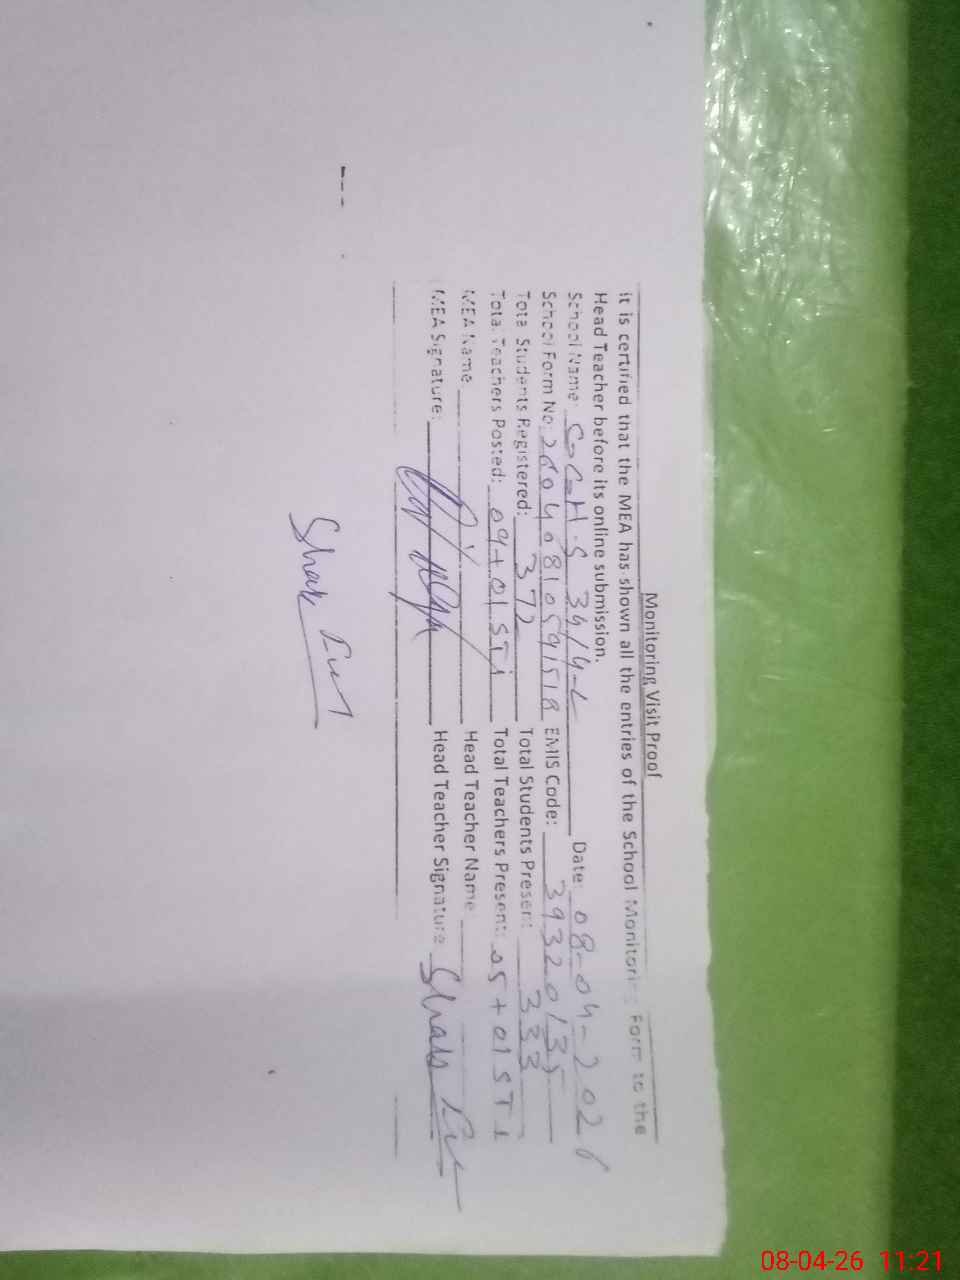 Monitoring Visit Proof
it is certified that the MEA has shown all the entries of the School Monitoring Form to the
Head Teacher before its online submission.
School Name: G.G.H.S 34/4-L Date: 08-04-2026
School Form No: 26040810591518 EMIS Code: 39320135
Total Students Registered: 372 Total Students Present: 333
Total Teachers Posted: 09+01 STI Total Teachers Present: 05+01 STI
MEA Name Head Teacher Name
MEA Signature: Head Teacher Signature
08-04-26 11:21